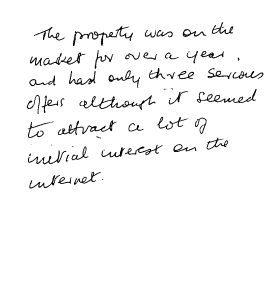 The property was on the
market for over a year,
and had only three serious
offers although it seemed
to attract a lot of
initial interest on the
internet.